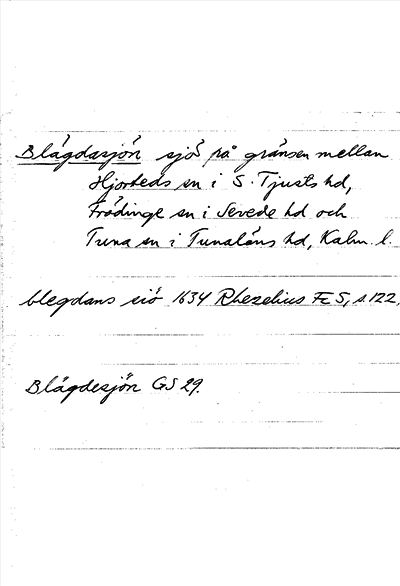 Blågdasjön sjö på gränsen mellan
Hjorteds sn i S. Tjusts hd,
Frödinge sn i Sevede hd och
Tuna sn i Tunaläns hd, Kalm. l.
blegdans siö 1634 Rhezelius FE 5, s. 122.
Blägdesjön GS 29.